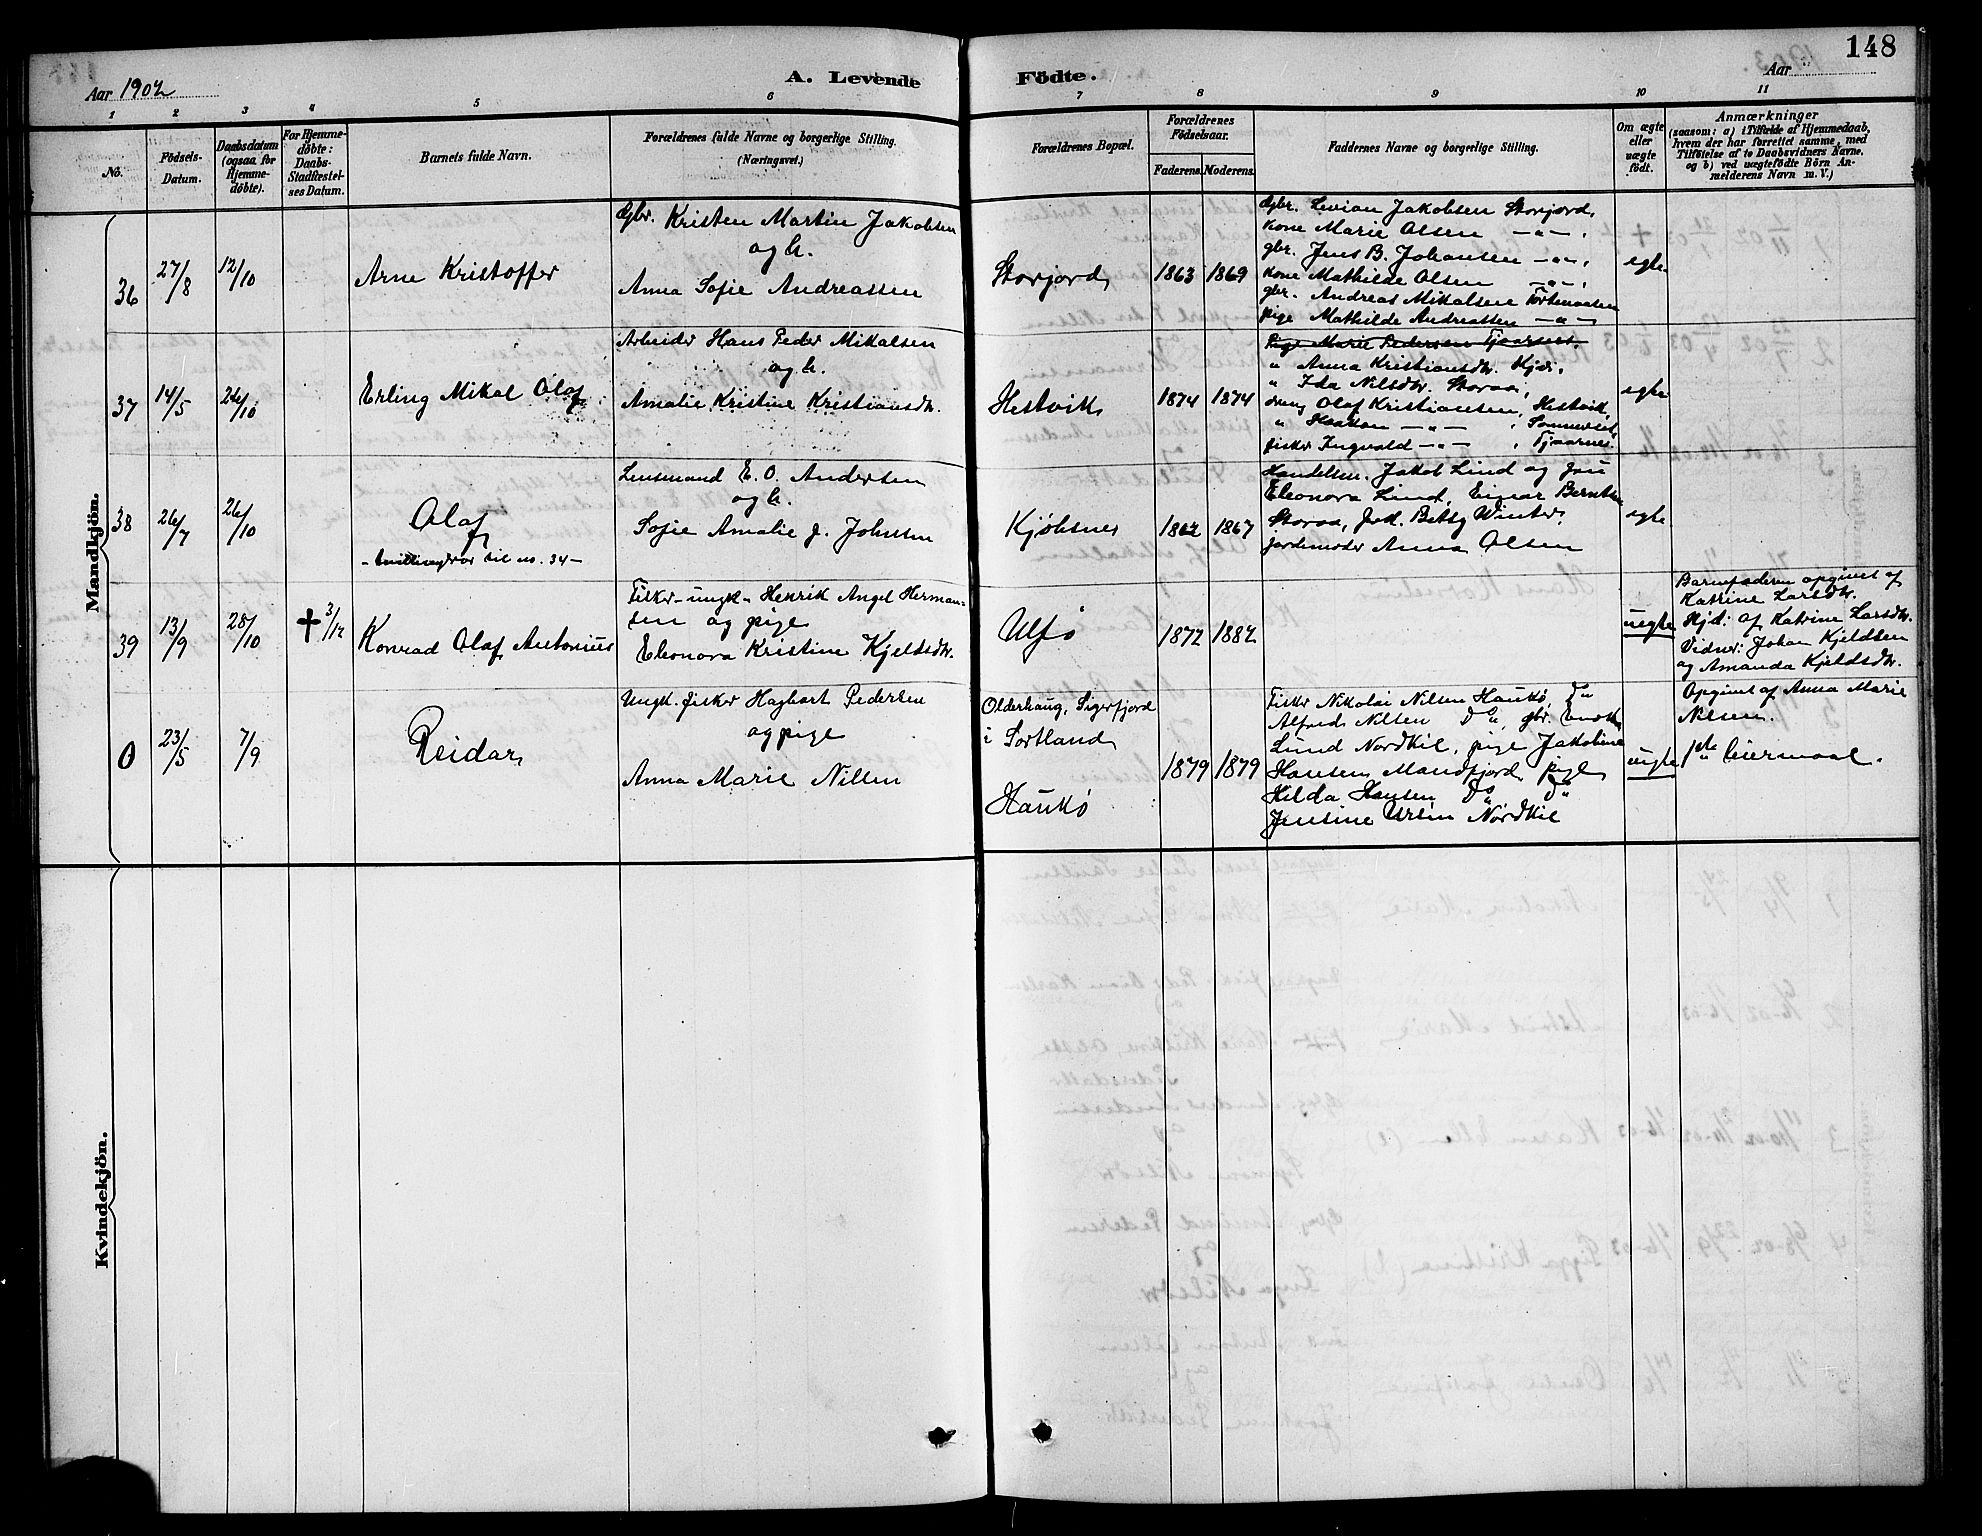 148
Aar 1902
A. Levende Födte.
Aar
1 2 3 4 5 6 7 8 9 10 11
No.
Födsels-Datum.
Daabsdatum (ogsaa for Hjemme-döbte).
For Hjemme-döbte: Daabs-Stadfæstel-ses Datum.
Barnets fulde Navn.
Forældrenes fulde Navne og borgerlige Stilling. (Næringsvei.)
Forældrenes Bopæl.
Forældrenes Födselsaar.
Faderens. Moderens.
Faddernes Navne og borgerlige Stilling.
Om ægte eller uægte födt.
Anmærkninger
(saasom: a) i Tilfælde af Hjemmedaab,
hvem der har forrettet samme, med
Tilföielse af to Daabsvidners Navne.
og b) ved uægtefödte Börn An-
melderens Navn m. V.)
Mandkjön.
36 27/8 12/10 Arne Kristoffer
Gbr. Kristen Martin Jakobsen
og h.
Anna Sofie Andreassen
Storjord 1863 1869
Gbr. Levian Jakobsen Storjord,
Kone Marie Olsen —"— ,
gbr. Jens B. Johansen —"— ,
Kone Mathilde Olsen —"— ,
gbr. Andreas Mikalsen
pige Mathilde Andreassen —"—
egte
37 14/5 26/10 Erling Mikal Olaf
Arbeider Hans Peder Mikalsen
og h.
Amalie Kristine Kristiansdtr.
Hestvik 1874 1874
Pige Marie Pedersen Tjaarnes.
" Anna Kristiansdtr. Kjöv.
" Ida Nilsdtr. Storaa,
dreng Olaf Kristiansen, Hestvik,
" Haakon —"— , Sommerset,
fisker Ingvald —"— , Tjaarnes.
egte
38 26/7 26/10 Olaf
- tvillingbror til no. 34 -
Lensmand E. O. Andersen
og h.
Sofie Amalie f. Johnsen
Kjöbsnes 1862 1867
Handelsm. Jakob Lind og fru
Eleonora Lind, Einar Berntsen
Storaa, frk. Betty Winter,
jordemoder Anna Olsen
egte
39 13/9 28/10 † 3/12 Konrad Olaf Antonius
Fisker - ungk. Henrik Angel Herman-
sen og pige
Eleonora Kristine Kjeldsdtr.
Ulfö 1872 1882
uegte
Barnefaderen opgivet af
Katrine Larsdtr.
Hjd: af Katrine Larsdtr.
Vidner: Johan Kjeldsen
og Amanda Kjeldsdtr.
0 23/5 7/9 Reidar
Ungk. fisker Hagbart Pedersen
og pige
Anna Marie Nilsen
Olderhaug, Sigerfjord
i Sortland
Haukö
1879 1879
Fisker Nikolai Nilsen Haukö, Do
Alfred Nilsen Do, gbr. Enok
Lund Nordkil, pige Jakobine
Hansen, Mandfjord, pige
Hilda Hansen Do Do
Jensine Nordkil
uegte
Opgivet af Anna Marie
Nilsen.
1ste leiermaal.
Kvindekjön.